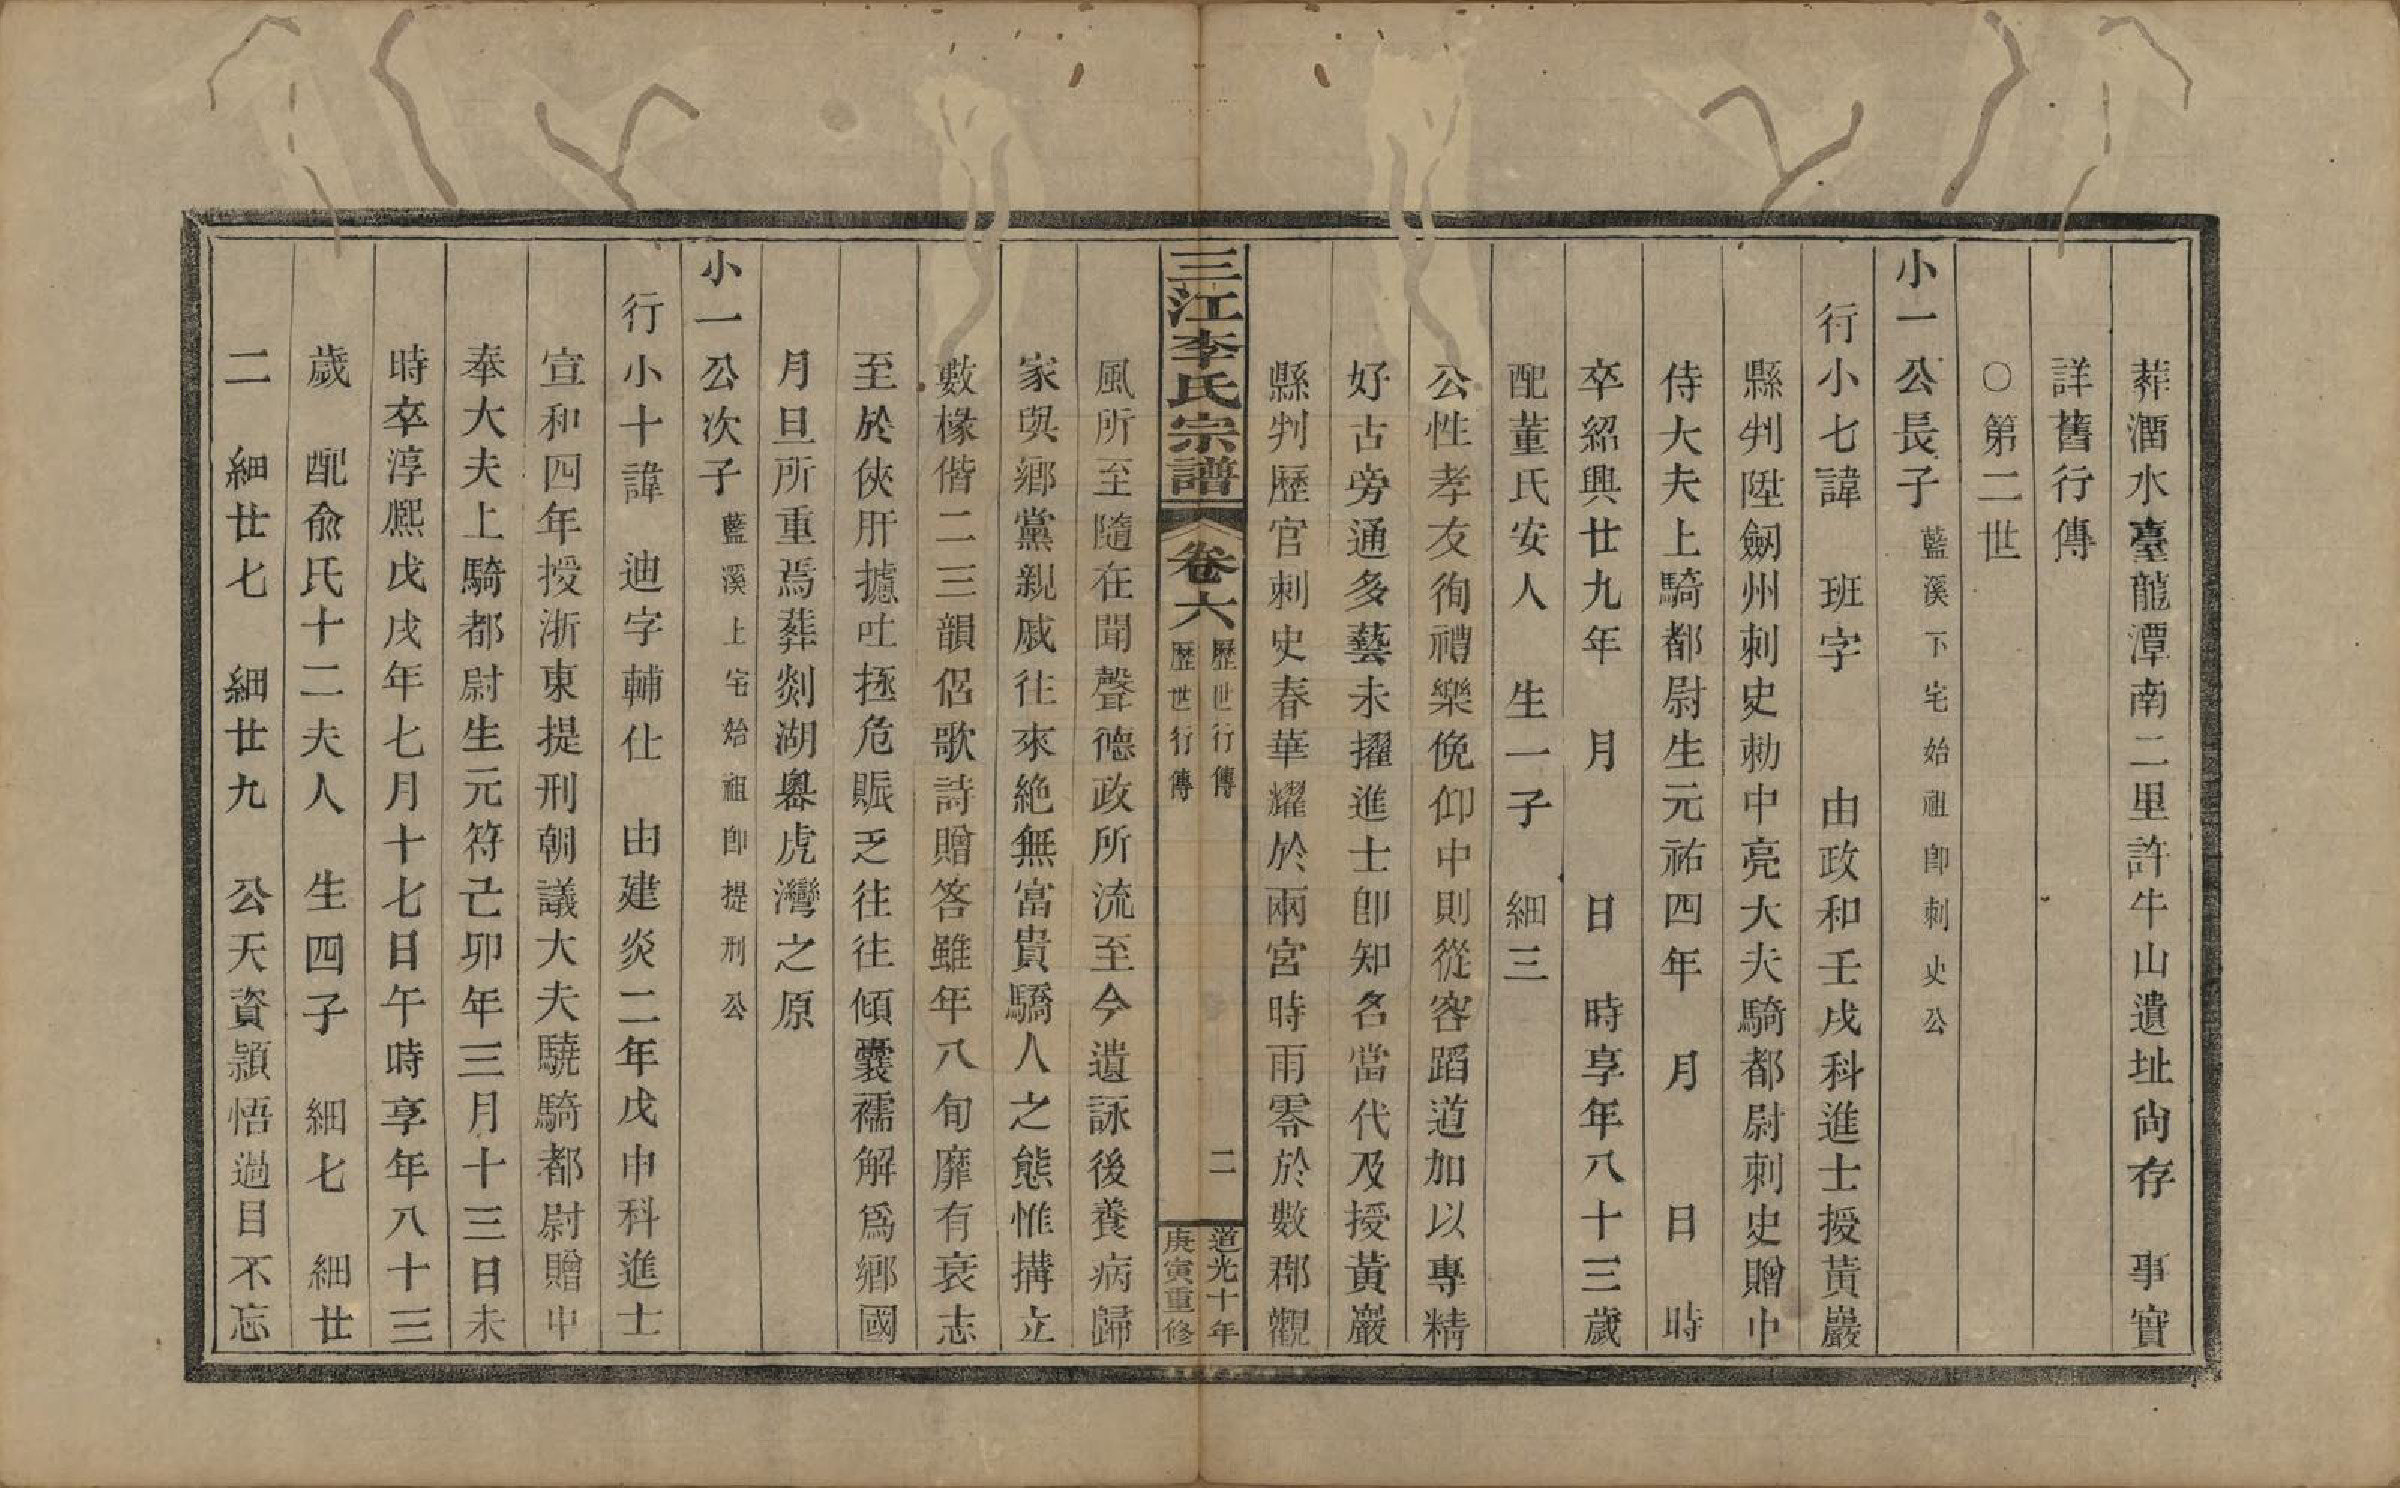 葬湮水臺龍潭南二里許牛山遺址尚存　事實
詳舊行傳
○第二世
小一公長子藍溪下宅始祖卽刺史公
行小七諱　班字　　由政和壬戌科進士授黃巖
縣判陞劔州刺史勅中亮大夫騎都尉刺史贈中
侍大夫上騎都尉生元祐四年　月　　日　時
卒紹興廿九年　月　　日　時享年八十三歲
配董氏安人　生一子　細三
公性孝友徇禮樂俛仰中則從容蹈道加以專精
好古旁通多藝未擢進士卽知名當代及授黃巖
縣判歷官刺史春華耀於兩宮時雨零於數郡觀
三江李氏宗譜　卷六　歷世行傳　歷世行傳　二　道光十年　庚寅重修
風所至隨在聞聲德政所流至今遺詠後養病歸
家與鄉黨親戚往來絶無富貴驕人之態惟搆立
數椽偕二三韻侶歌詩贈答雖年八旬靡有衰志
至於俠肝攄吐拯危賑乏往往傾囊襦解爲鄉國
月旦所重焉葬剡湖嶴虎灣之原
小一公次子藍溪上宅始祖卽提刑公
行小十諱　迪字輔仕　由建炎二年戊申科進士
宣和四年授浙東提刑朝議大夫驍騎都尉贈中
奉大夫上騎都尉生元符己卯年三月十三日未
時卒淳熈戊戌年七月十七日午時享年八十三
歲　配俞氏十二夫人　生四子　細七　細廿
二　細廿七　細廿九　公天資頴悟過目不忘